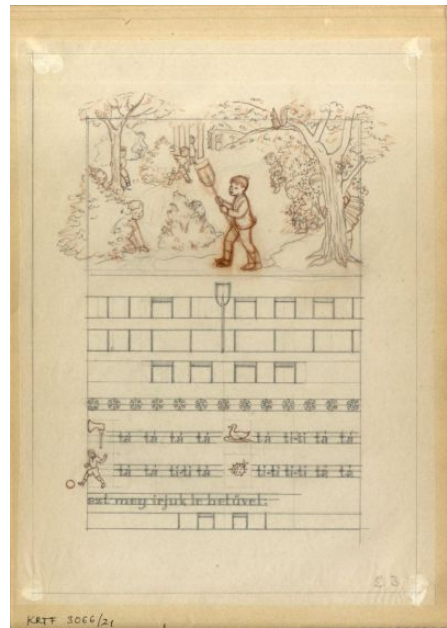 tá tá tá tá tá ti-ti tá tá
tá tá ti-ti tá ti-ti ti-ti tá tá
ezt meg írjuk le betűvel:
23
KRTF 3066/21